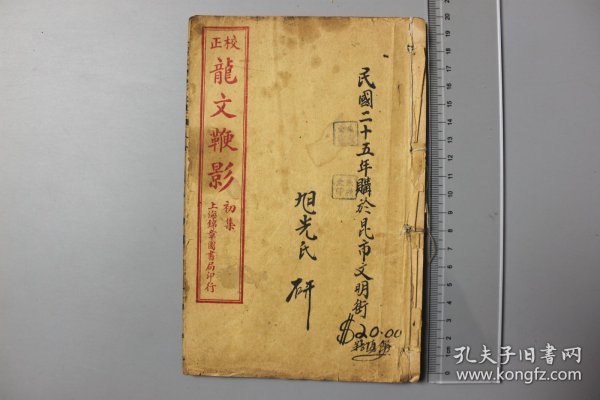 校正
龍文鞭影
初集
上海錦章圖書局印行
民國二十五年購於昆市文明街
旭光氏 研
$20.00
孔夫子旧书网
www.kongfz.com